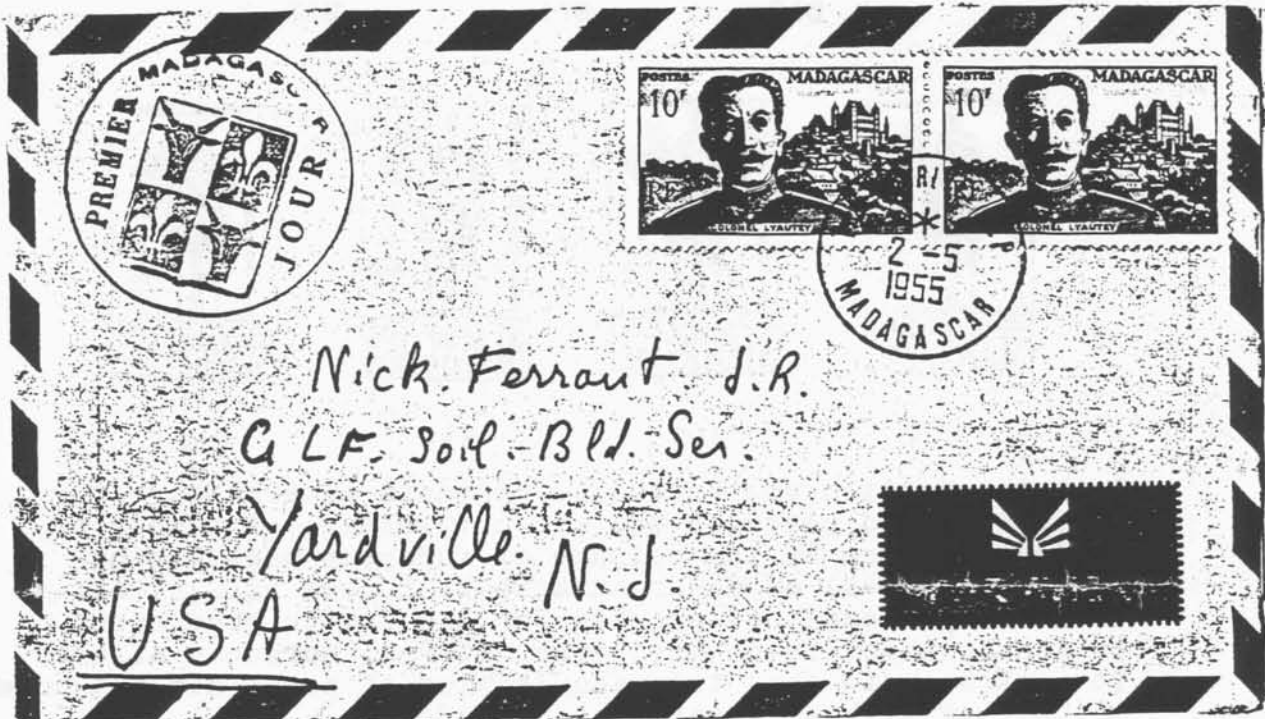 MADAGASCAR
PREMIER
JOUR
POSTES MADAGASCAR
10F
RF
COLONEL LYAUTEY
POSTES MADAGASCAR
10F
RF
COLONEL LYAUTEY
2-5
1955
MADAGASCAR
Nick. Ferrant. J.R.
G LF. Soil.-Bld. Ser.
Yardville. N.J.
USA